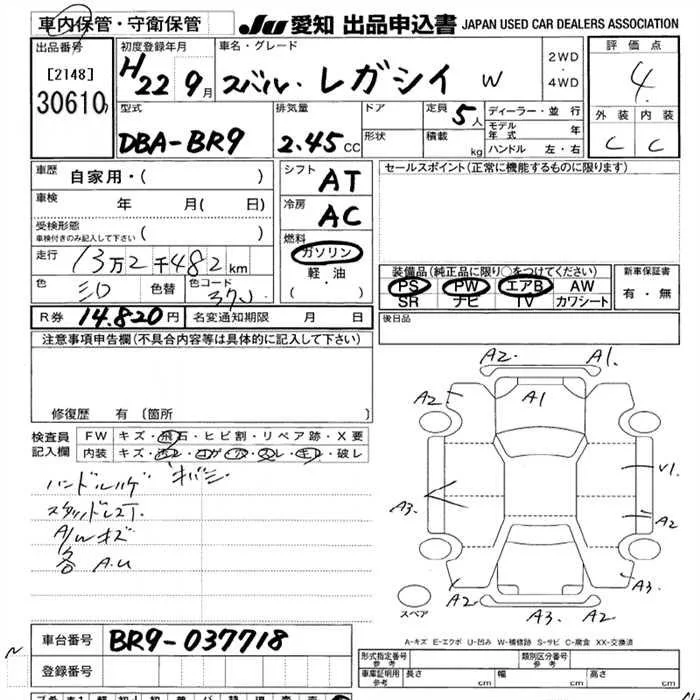 車内保管・守衛保管 JU 愛知 出品申込書 JAPAN USED CAR DEALERS ASSOCIATION
出品番号 初度登録年月 車名・グレード 2WD ・ 4WD 評価点
[2148] H22 9月 スバル・レガシイ W 4
30610
型式 排気量 ドア 定員 5人 ディーラー・並行 外装 内装
DBA-BR9 2.45CC 形状 積載 kg モデル年式 年 C C
ハンドル 左・右
車歴 自家用・( ) シフト AT セールスポイント(正常に機能するものに限ります)
車検 年 月( 日) 冷房 AC
受検形態 ( )
車検付きのみ記入して下さい
燃料 ガソリン
走行 13万2千482km 軽油
装備品(純正品に限り○をつけてください) 新車保証書
色 色替 色コード 37J ・ ( ) PS PW エアB AW 有・無
SR ナビ TV カワシート
R券 14.820円 名変通知期限 月 日 後日品
注意事項申告欄(不具合内容等は具体的に記入して下さい)
修復歴 有 [箇所
検査員 FW キズ・飛石・ヒビ割・リペア跡・X要
記入欄 内装 キズ・汚レ・コゲ・穴・スレ・キレ・破レ
ハンドルハゲ
スタッドレス
A/Wキズ
各 A.U
A2 A1
A2 A1 A2
A3 V1
A2
A2 A3
スペア A3 A2
A-キズ E-エクボ U-凹み W-補修跡 S-サビ C-腐食 XX-交換済
車台番号 BR9-037718
登録番号
形式指定番号 参考 類別区分番号 参考
車庫証明用 参考 長さ cm 幅 cm 高さ cm